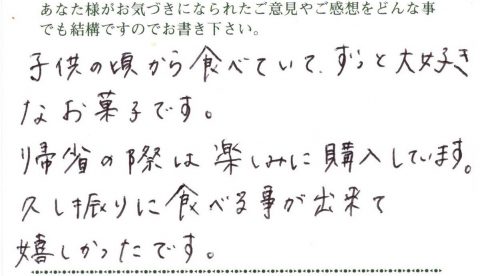 あなた様がお気づきになられたご意見やご感想をどんな事
でも結構ですのでお書き下さい。
子供の頃から食べていて、ずっと大好き
なお菓子です。
帰省の際は楽しみに購入しています。
久し振りに食べる事が出来て
嬉しかったです。